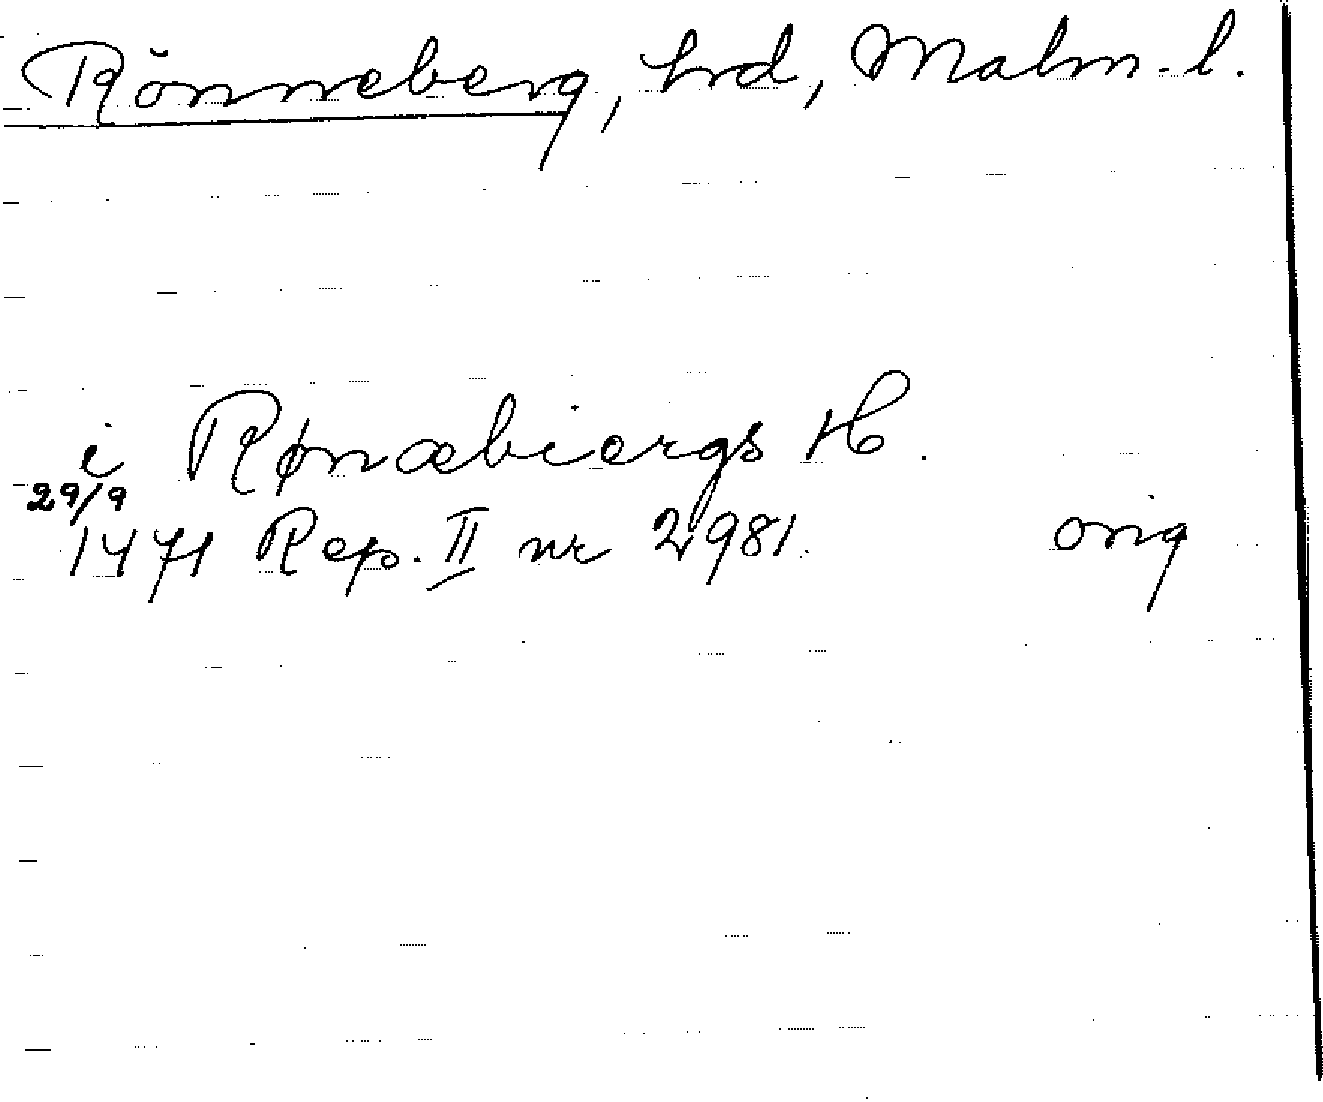 Rönneberg, hrd, Malm. l.
i Rønæbiergs H.
29/9
1471 Rep. II nr 2981. orig